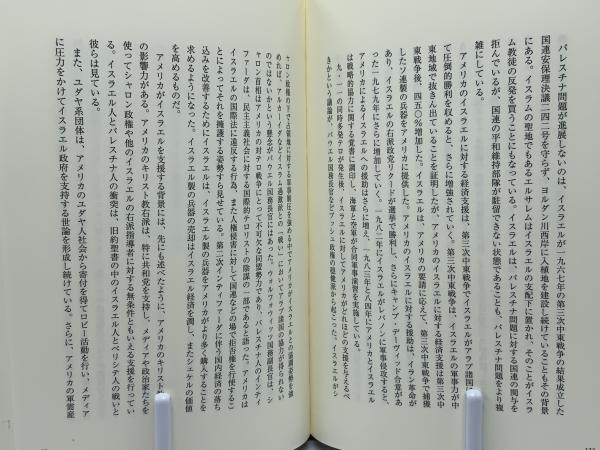 パレスチナ問題が進展しないのは、イスラエルが一九六七年の第三次中東戦争の結果成立した
国連安保理決議二四二号を守らず、ヨルダン川西岸に入植地を建設し続けていることもその背景
にある。イスラムの聖地でもあるエルサレムはイスラエルの支配下に置かれ、そのことがイスラ
ム教徒の反発を買うことにもなっている。イスラエルは、パレスチナ問題に対する国連の関与を
拒んでいるが、国連の平和維持部隊が駐留できない状態であることも、パレスチナ問題をより複
雑にしている。
アメリカのイスラエルに対する経済支援は、第三次中東戦争でイスラエルがアラブ諸国に
て圧倒的勝利を収めると、さらに増強されていく。第三次中東戦争は、イスラエルの軍事力が中
東地域で抜きん出ていることを証明したが、アメリカのイスラエルに対する経済支援は第三次中
東戦争後、四五〇％増加した。イスラエルは、アメリカの要請に応えて、第三次中東戦争で捕獲
したソ連製の兵器をアメリカに提供した。アメリカのイスラエルに対する援助は、イラン革命が
あり、イスラエルの右派政党リクードが選挙で勝利し、さらにキャンプ・デーヴィッド合意があ
った一九七九年にさらに増加していく。一九八二年にイスラエルがレバノンに軍事侵攻すると、
アメリカによるイスラエルへの援助はさらに増え、一九八三年と八四年にアメリカとイスラエル
は戦略的協力に関する覚書に調印し、海軍と空軍が合同軍事演習を実施している。
九・一一の同時多発テロが発生後、イスラエルに対してアメリカがどれほどの支援を与えるべ
きかという議論が、パウエル国務長官などブッシュ政権の穏健派から起こった。イスラエルがシ
ャロン政権の下で占領地に対する軍事侵攻を強める中でアメリカがイスラエルとの協調姿勢を強
めれば、アルカイダなどイスラム過激派との「戦い」においてアラブ諸国の協力が得られない
のではないかという懸念がパウエル国務長官にはあった。ウォルフォウィッツ国防副長官は、シ
ャロン首相はアメリカの対テロ戦争にとって不可欠な同盟勢力であり、パレスチナ人のインティ
ファーダは、民主主義社会に対する国際的テロリストの陰謀の一部であると語った。アメリカは
イスラエルの国際法に違反する行為、また人権侵害に対して国連などの場で拒否権を行使するこ
とによってそれを擁護する姿勢すら見せている。第二次インティファーダに伴う国内経済の落ち
込みを改善するためにイスラエルは、イスラエル製の兵器をアメリカがより多く購入することを
求めるようになった。イスラエル製の兵器の売却はイスラエル経済を潤し、またシェケルの価値
を高めるものだ。
アメリカがイスラエルを支援する背景には、先にも述べたように、アメリカのキリスト
の影響力がある。アメリカのキリスト教右派は、特に共和党を支持し、メディアや政治家たちを
使ってシャロン政権や他のイスラエルの右派指導者に対する無条件ともいえる支援を行ってい
る。イスラエル人とパレスチナ人の衝突は、旧約聖書の中のイスラエル人とペリシテ人の戦いと
彼らは見ている。
また、ユダヤ系団体は、アメリカのユダヤ人社会から寄付を得てロビー活動を行い、メディア
に圧力をかけてイスラエル政府を支持する世論を形成し続けている。さらに、アメリカの軍需産